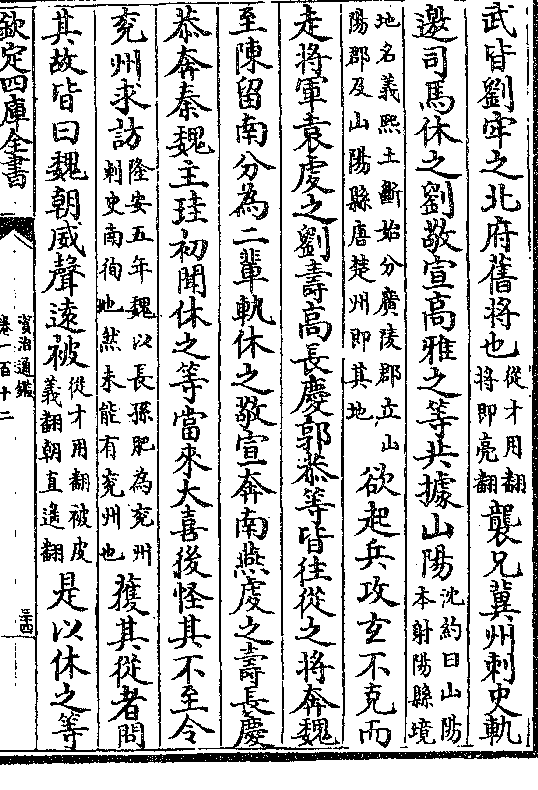 武皆劉牢之北府舊將也從才用翻將即亮翻襲兄冀州刺史軌
邀司馬休之劉敬宣高雅之等共據山陽沈約曰山陽本射陽縣境
地名義熙土斷始分廣陵郡立山陽郡及山陽縣唐楚州即其地欲起兵攻玄不克而
走將軍袁虔之劉壽高長慶郭恭等皆往從之將奔魏
至陳留南分為二輩軌休之敬宣奔南燕虔之壽長慶
恭奔秦魏主珪初聞休之等當來大喜後怪其不至令
兗州求訪隆安五年魏以長孫肥為兗州刺史南徇地然未能有兗州也獲其從者問
其故皆曰魏朝威聲遠被從才用翻被皮義翻朝直遙翻是以休之等
欽定四庫全書
資治通鑑
卷一百十二
三十四